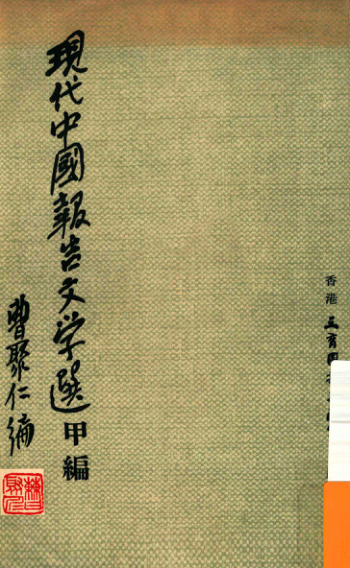 香港 三育图
現代中國報告文学選 甲編
曹聚仁編